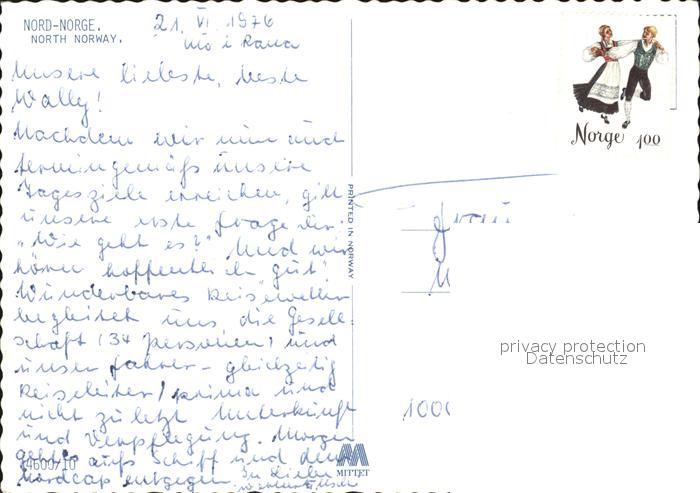 NORD-NORGE.
NORTH NORWAY.
21. VI. 1976
Mo i Rana
Unsere liebste, beste
Wally!
Nachdem wir nun auch
termingemäss unsere
Tagesziele erreichen, gilt
unsere erste Frage dir:
"Wie geht es?" Und wir
hören hoffentlich "gut".
Wunderbares Reisewetter
begleitet uns, die Gesell-
schaft (34 Personen) und
unser Fahrer - gleichzeitig
Reiseleiter / prima und
nicht zuletzt Unterkunft
und Verpflegung. Morgen
geht's aufs Schiff und dem
Nordcap entgegen. In Liebe
14600/10
PRINTED IN NORWAY
MITTET
Norge 100
Frau
1000
privacy protection
Datenschutz